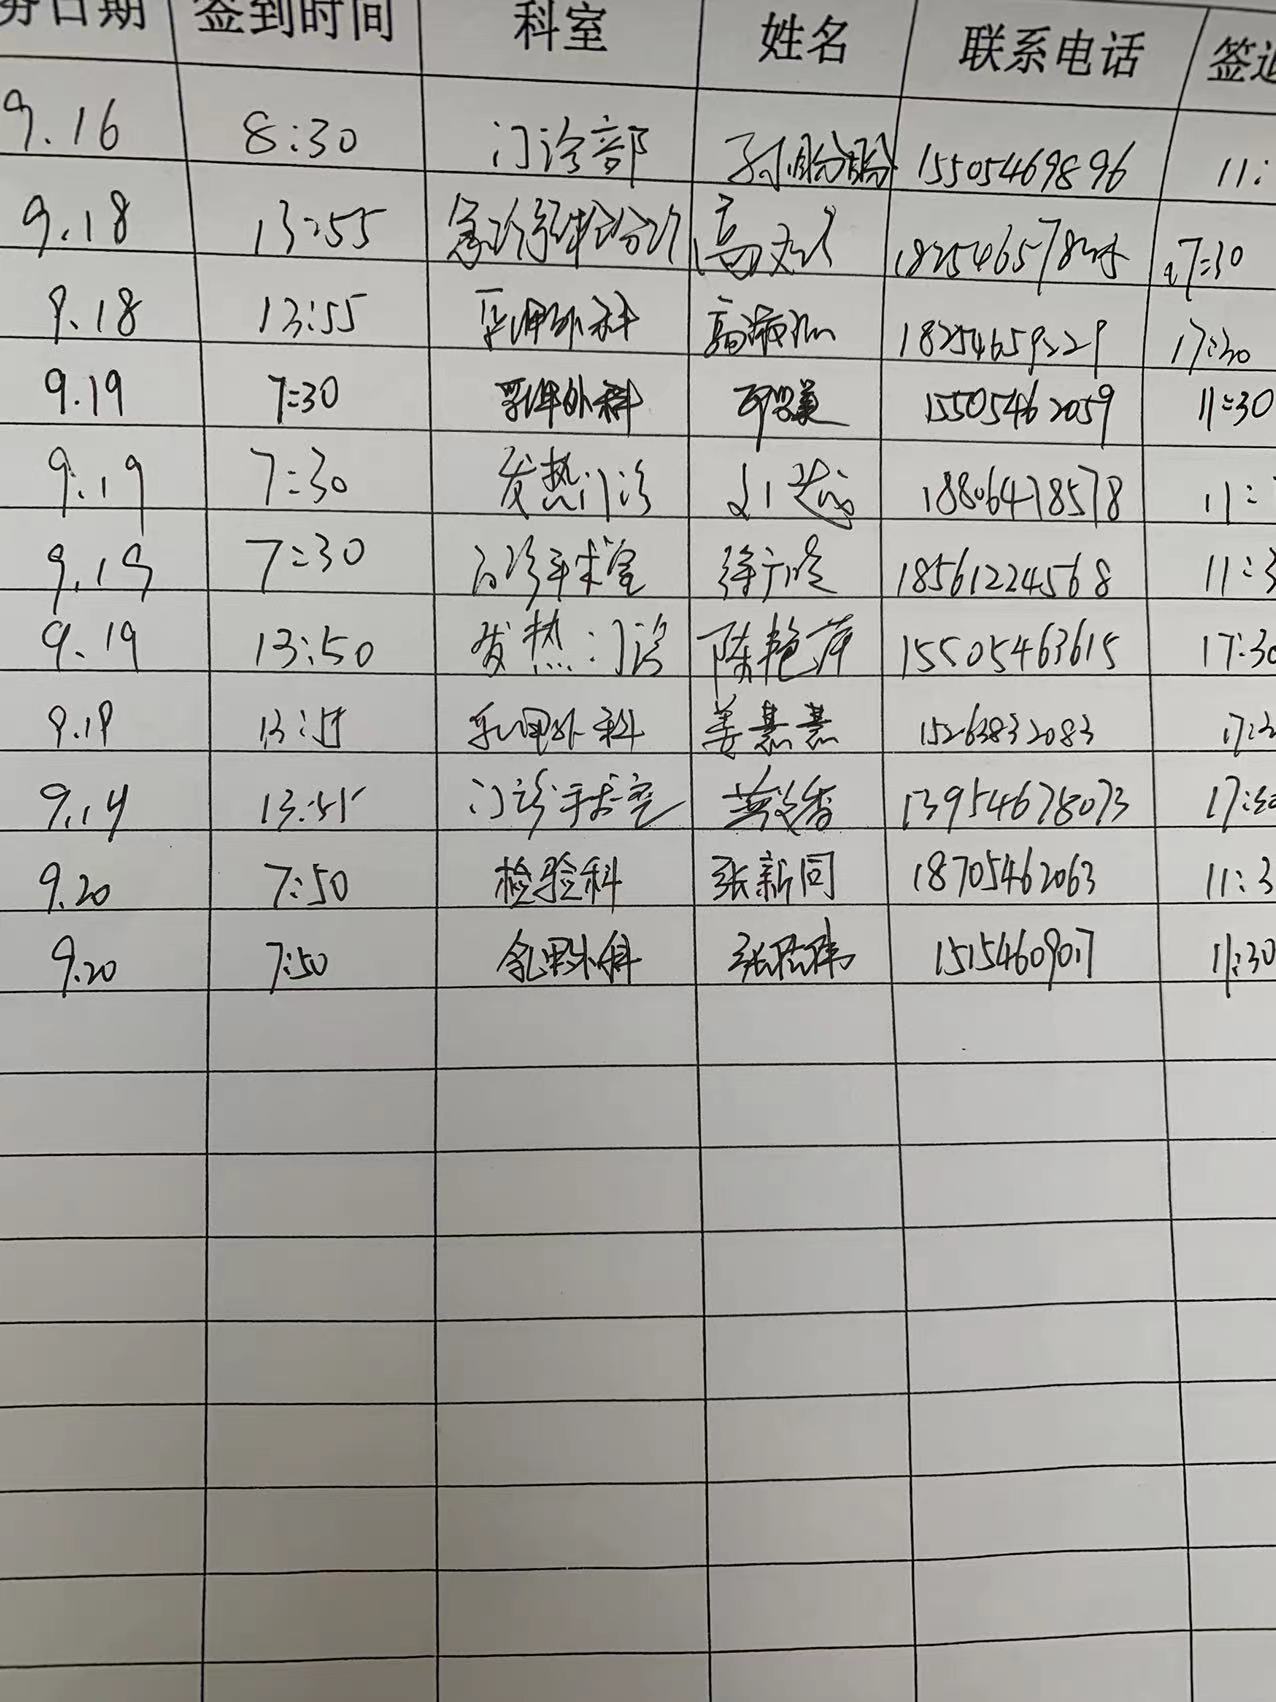 务日期 签到时间 科室 姓名 联系电话 签退
9.16 8:30 门诊部 孙盼盼 15505469896 11:
9.18 13:55 高 17:30
9.18 13:55 乳甲外科 高 18254659229 17:30
9.19 7:30 乳甲外科 15505462059 11:30
9.19 7:30 发热门诊 18806478578 11:
9.19 7:30 门诊手术室 徐 18561224568 11:3
9.19 13:50 发热门诊 陈艳萍 15505463615 17:30
9.19 13:55 乳甲外科 姜慕慕 15263832083 17:3
9.19 13:55 门诊手术室 13954678073 17:30
9.20 7:50 检验科 张新同 18705462063 11:3
9.20 7:50 乳甲外科 张 11:30